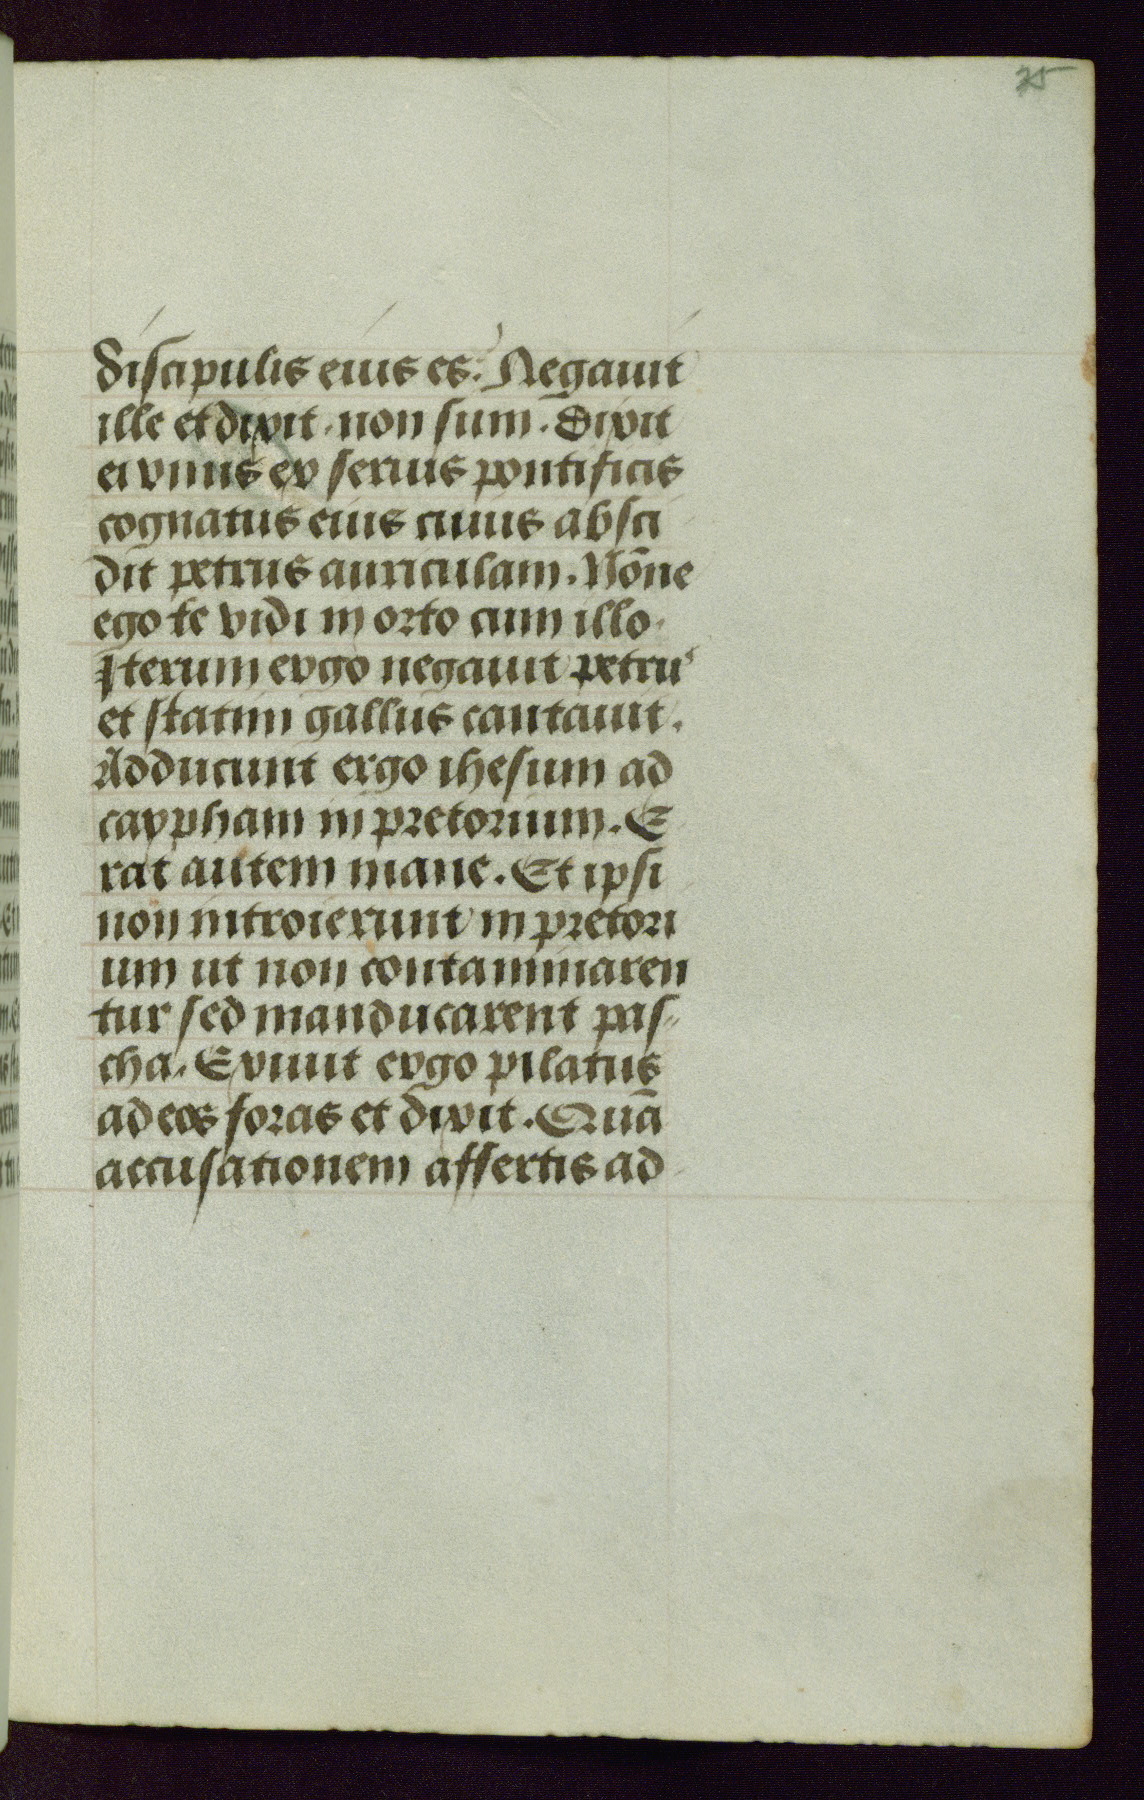 35
discipulis eius es? Negauit
ille et dixit. non sum. Dixit
ei vnus ex seruis pontificis
cognatus eius cuius absci
dit petrus auriculam. Nōne
ego te vidi in orto cum illo.
Iterum ergo negauit petruꝰ
et statim gallus cantauit.
Adducunt ergo ihesum ad
caypham in pretorium. E
rat autem mane. Et ipsi
non introierunt in pretori
um ut non contaminaren
tur sed manducarent pas-
cha. Exiuit ergo pilatus
ad eos foras et dixit. Quā
accusationem affertis ad